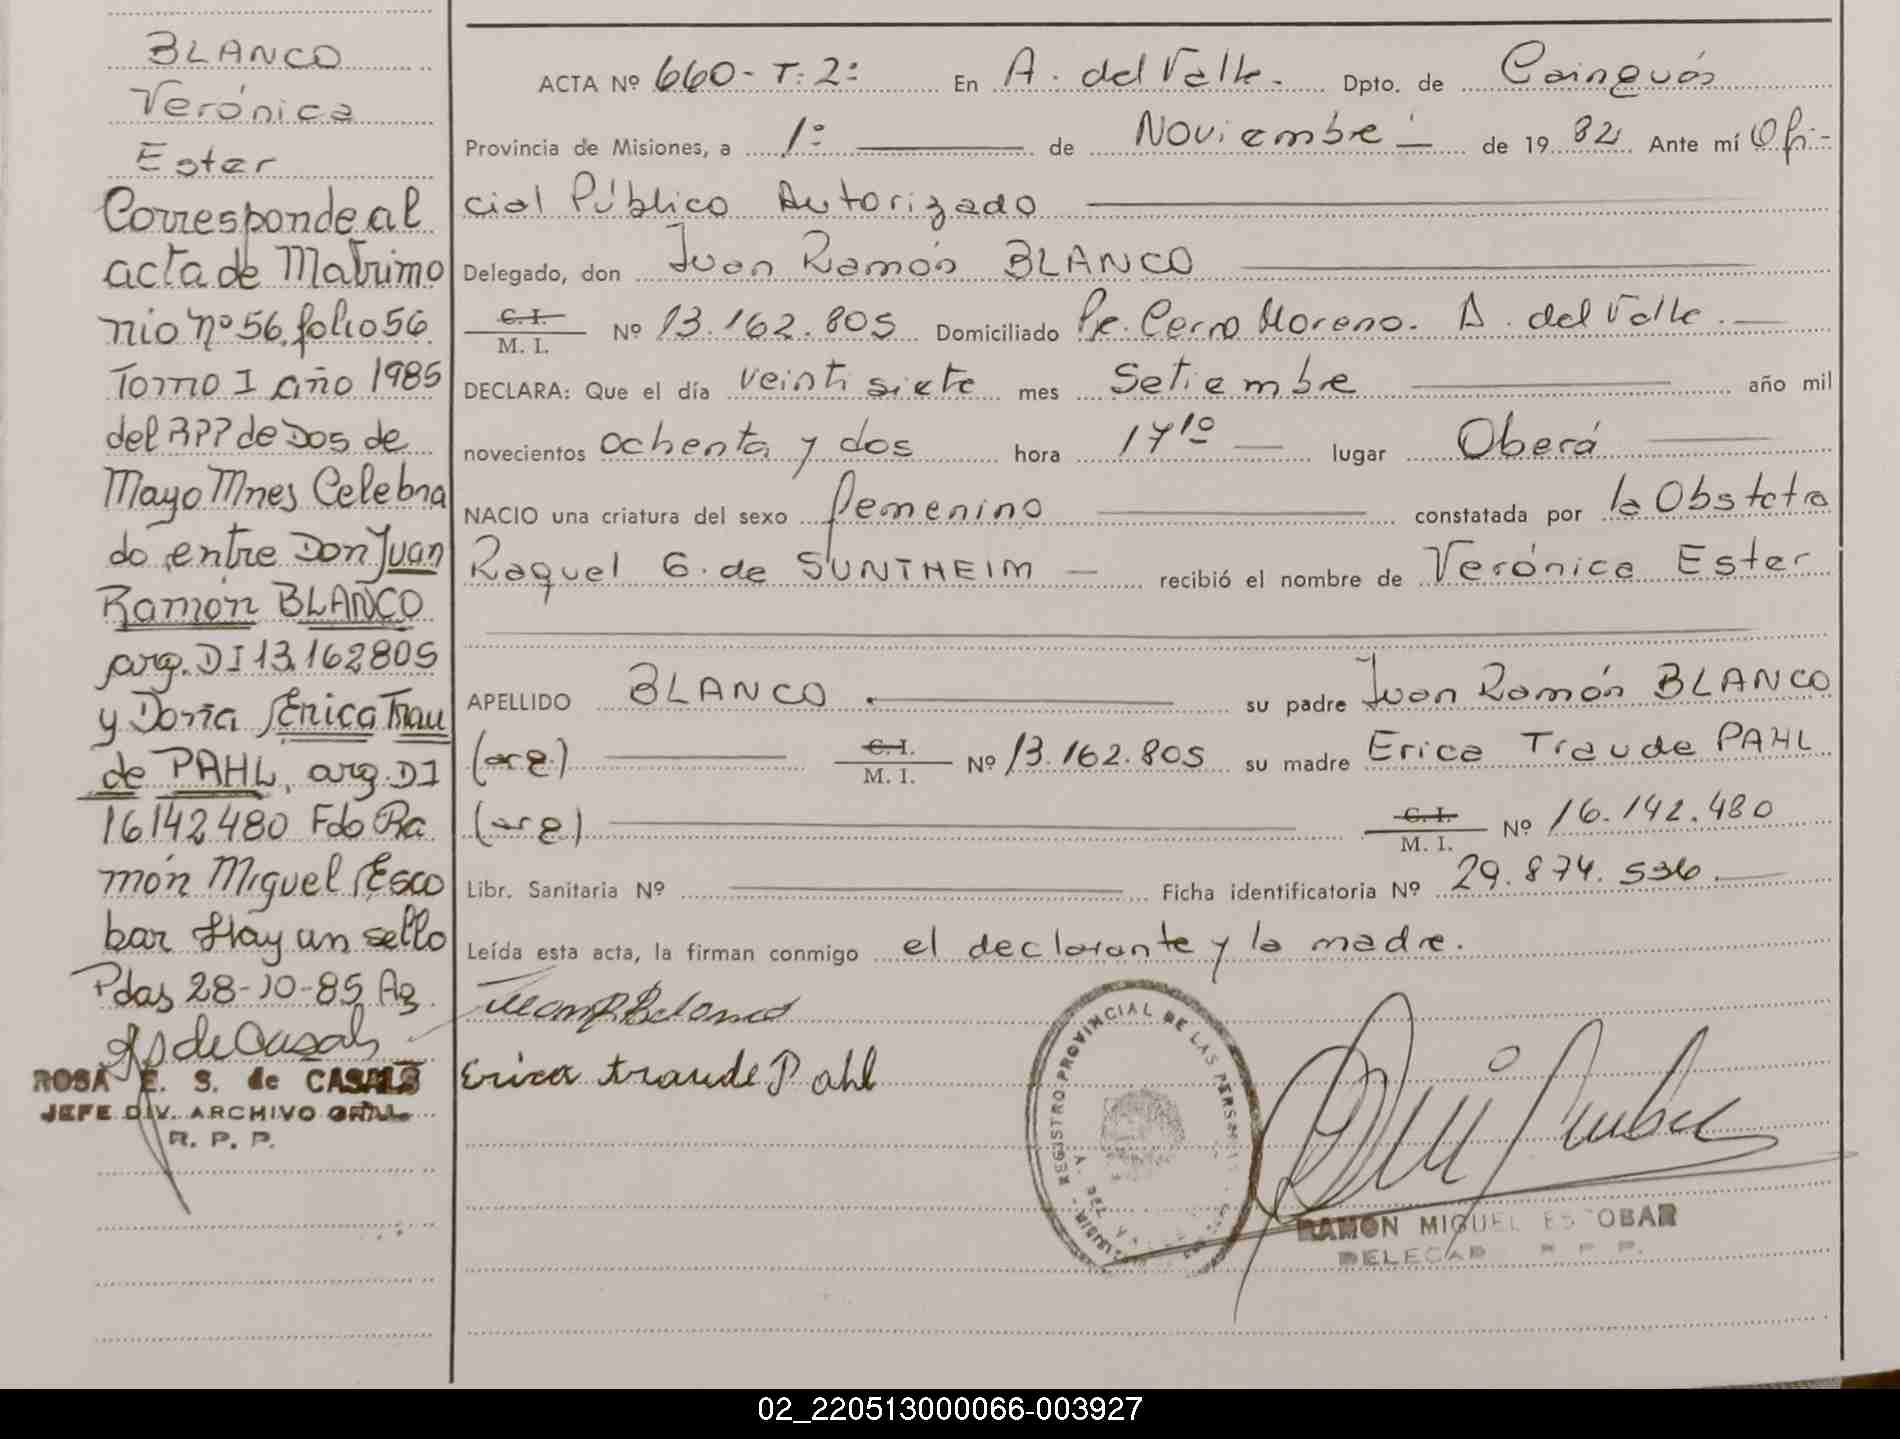 BLANCO
Verónica
Ester
Corresponde al
acta de Matrimo
nio nº 56, folio 56
Tomo I año 1985
del RPP de Dos de
Mayo Mnes Celebra
do entre Don Juan
Ramón BLANCO
arg. DI 13.162805
y Doña Erica Trau
de PAHL, arg. DI
16142480 Fdo Ra
món Miguel Esco
bar Hay un sello
Pdas 28-10-85
ROSA E. S. de CASALS
JEFE DIV. ARCHIVO GRAL.
R. P. P.
ACTA Nº 660-T: 2º En A. del Valle. Dpto. de Cainguás
Provincia de Misiones, a 1º de Noviembre de 1982 Ante mí Ofi-
cial Público Autorizado
Delegado, don Juan Ramón BLANCO
C. I.
M. I. Nº 13.162.805 Domiciliado Pje. Cerro Moreno. A. del Valle.
DECLARA: Que el día veintisiete mes Setiembre año mil
novecientos ochenta y dos hora 17¹⁰ lugar Oberá
NACIO una criatura del sexo femenino constatada por la Obstetra
Raquel G. de SUNTHEIM recibió el nombre de Verónica Ester
APELLIDO BLANCO. su padre Juan Ramón BLANCO
(arg) C. I.
M. I. Nº 13.162.805 su madre Erica Traude PAHL
(arg) C. I.
M. I. Nº 16.142.480
Libr. Sanitaria Nº Ficha identificatoria Nº 29.874.536.
Leída esta acta, la firman conmigo el declarante y la madre.
Juan R Blanco
Erica traude Pahl
REGISTRO PROVINCIAL DE LAS PERSONAS
RAMON MIGUEL ESCOBAR
DELEGADO R. P. P.
02_220513000066-003927